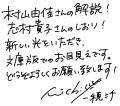 村山由佳さんの解説！
志村貴子さんのしおり！
新しい光をいただき、
文庫版でのお目見えです。
どうぞよろしくお願い致します！
一穂ミチ